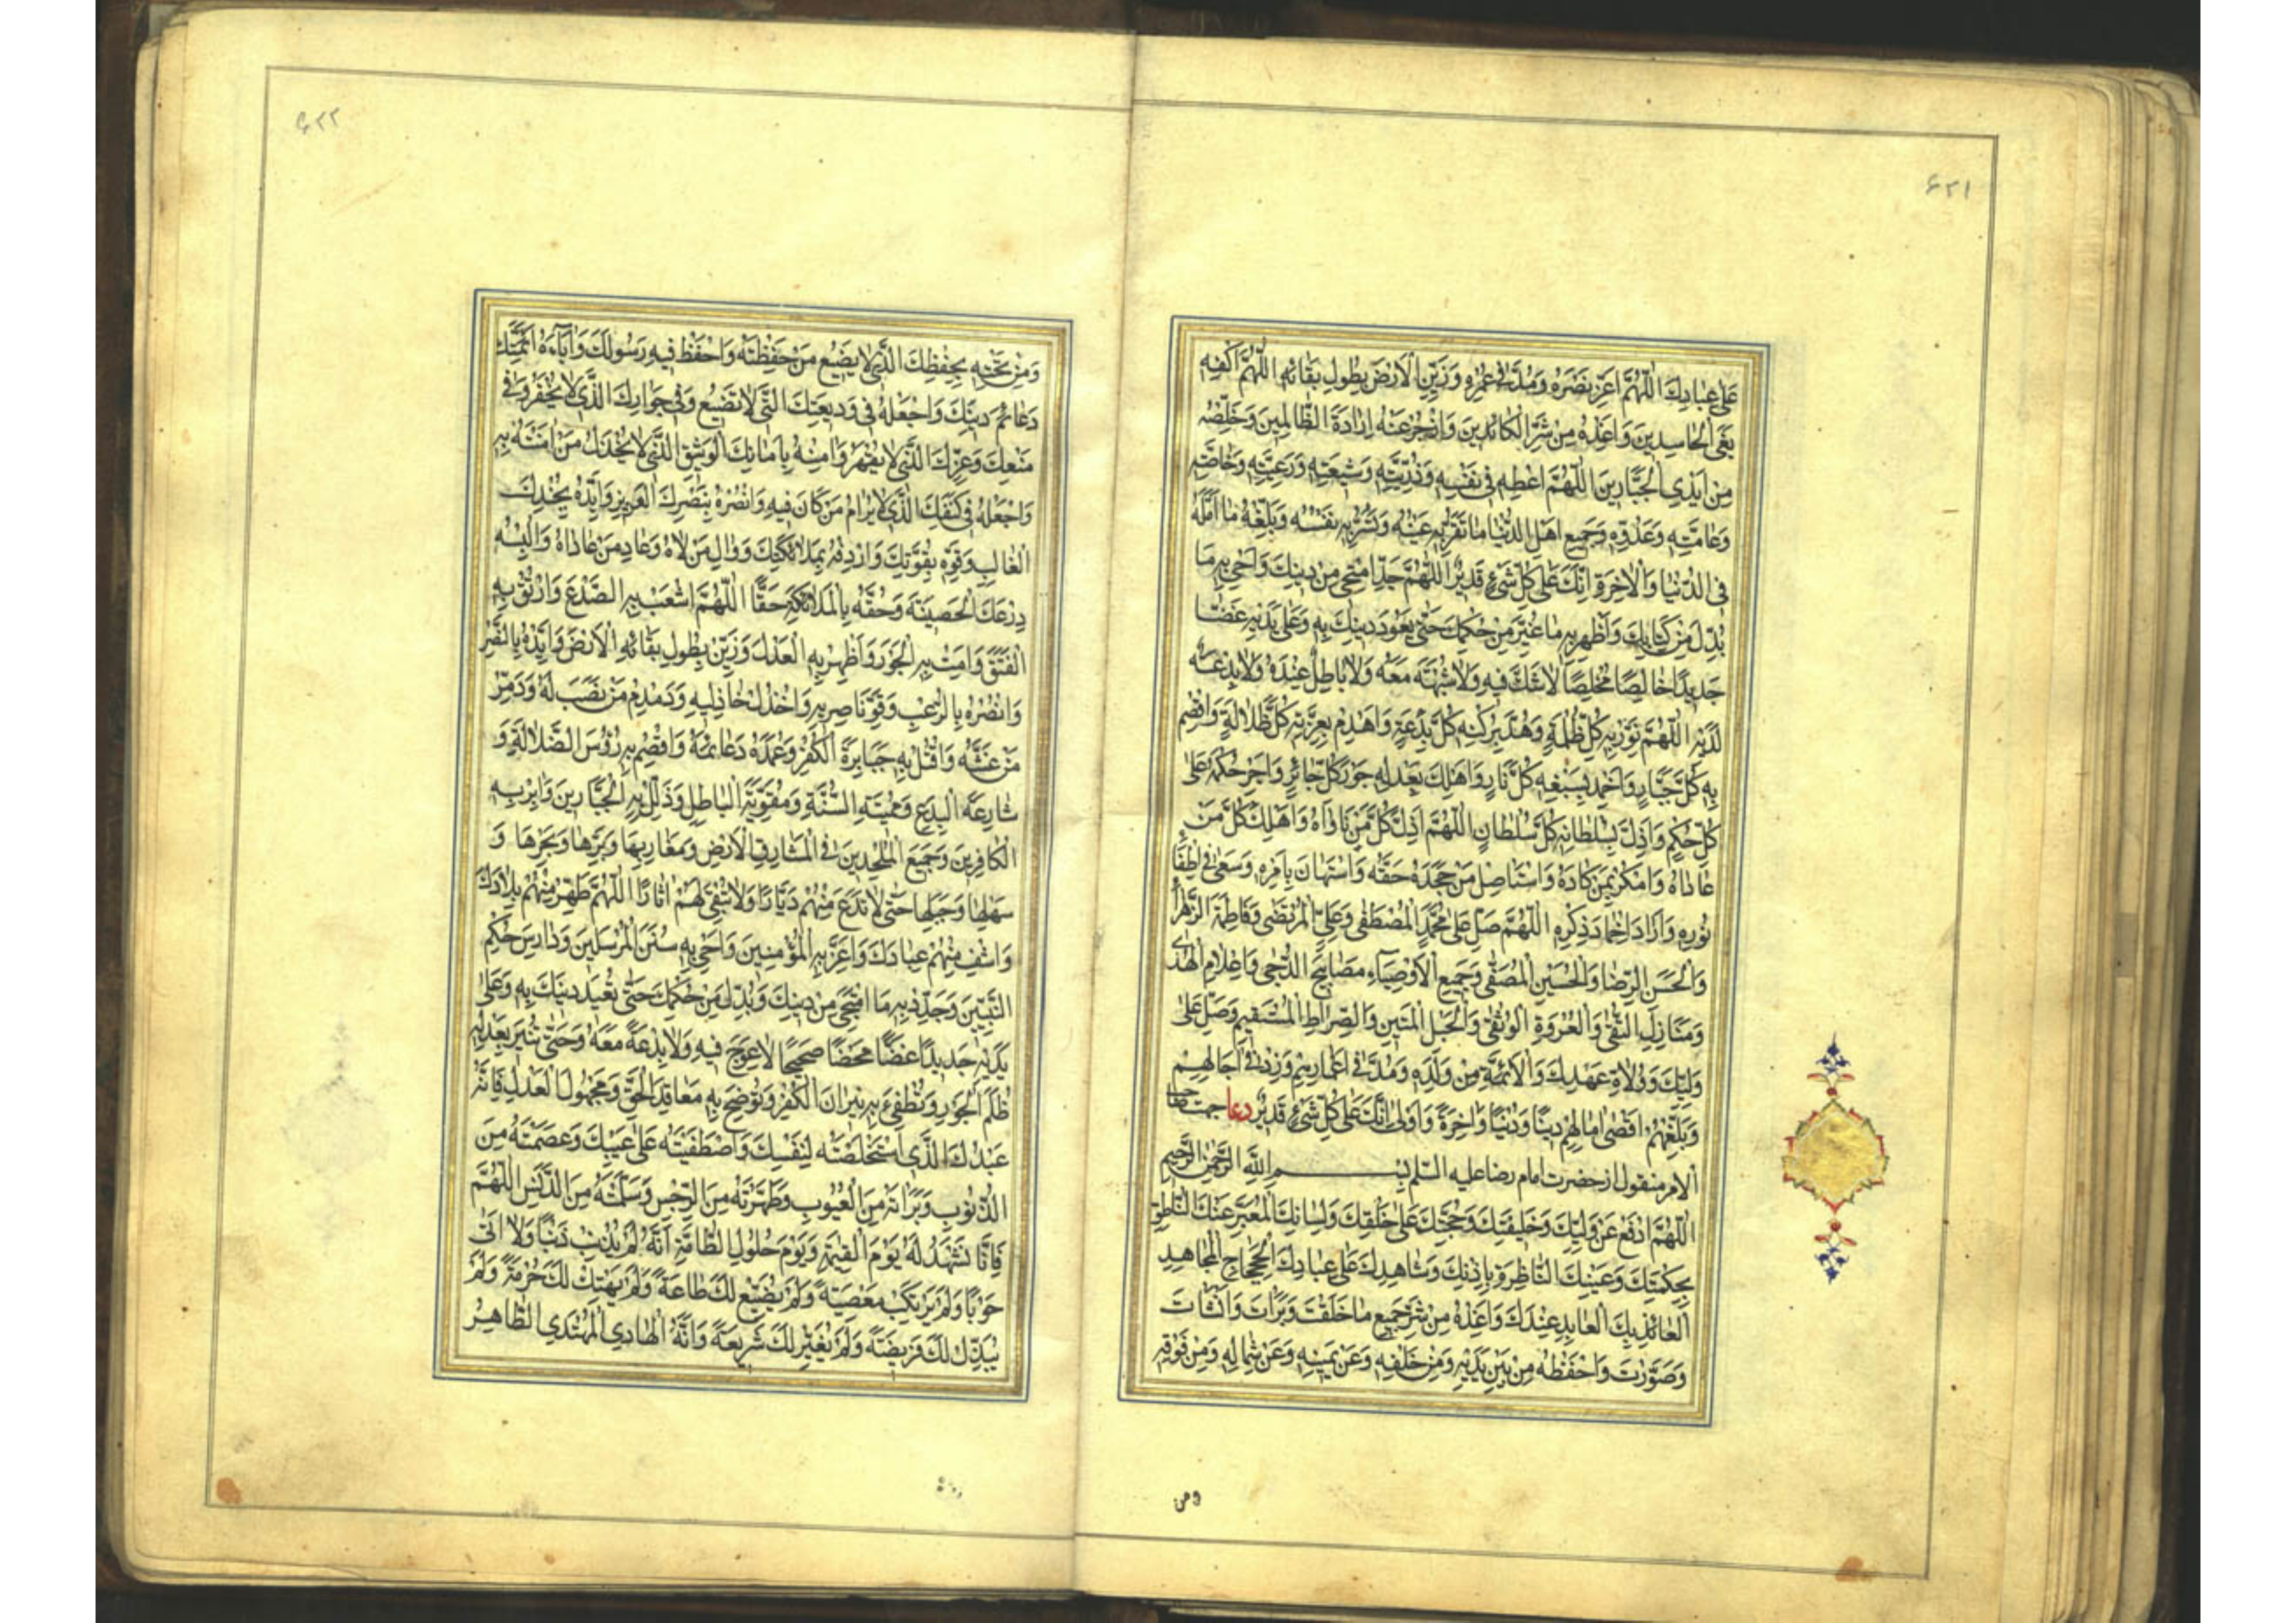 ۶۲۱
عَلىٰ عِبادِكَ اَللّٰهُمَّ اَعِزَّ نَصْرَهُ وَمُدَّ فى عُمْرِهِ وَزَيِّنِ الْاَرْضَ بِطُولِ بَقائِهِ اَللّٰهُمَّ اكْفِهِ
بَغْىَ الْحاسِدينَ وَاَعِذْهُ مِنْ شَرِّ الْكائِدينَ وَازْجُرْ عَنْهُ اِرادَةَ الظّالِمينَ وَخَلِّصْهُ
مِنْ اَيْدِى الْجَبّارينَ اَللّٰهُمَّ اَعْطِهِ فى نَفْسِهِ وَذُرِّيَّتِهِ وَشيعَتِهِ وَرَعِيَّتِهِ وَخاصَّتِهِ
وَعامَّتِهِ وَعَدُوِّهِ وَجَميعِ اَهْلِ الدُّنْيا ما تَقَرُّ بِهِ عَيْنُهُ وَتَسُرُّ بِهِ نَفْسُهُ وَبَلِّغْهُ ما اَمَّلَهُ
فِى الدُّنْيا وَالْاٰخِرَةِ اِنَّكَ عَلىٰ كُلِّ شَىْءٍ قَديرٌ اَللّٰهُمَّ جَدِّدْ ما مُحِىَ مِنْ دينِكَ وَاَحْىِ بِهِ ما
بُدِّلَ مِنْ كِتابِكَ وَاَظْهِرْ بِهِ ما غُيِّرَ مِنْ حُكْمِكَ حَتّىٰ يَعُودَ دينُكَ بِهِ وَعَلىٰ يَدَيْهِ غَضًّا
جَديدًا خالِصًا مُخْلَصًا لا شَكَّ فيهِ وَلا شُبْهَةَ مَعَهُ وَلا باطِلَ عِنْدَهُ وَلا بِدْعَةَ
لَدَيْهِ اَللّٰهُمَّ نَوِّرْ بِهِ كُلَّ ظُلْمَةٍ وَهُدَّ بِرُكْنِهِ كُلَّ بِدْعَةٍ وَاهْدِمْ بِعِزَّتِهِ كُلَّ ظَلالَةٍ وَاقْصِمْ
بِهِ كُلَّ جَبّارٍ وَاَخْمِدْ بِسَيْفِهِ كُلَّ نارٍ وَاَهْلِكْ بِعَدْلِهِ جَوْرَ كُلِّ جائِرٍ وَاَجْرِ حُكْمَهُ عَلىٰ
كُلِّ حُكْمٍ وَاَذِلَّ بِسُلْطانِهِ كُلَّ سُلْطانٍ اَللّٰهُمَّ اَذِلَّ كُلَّ مَنْ ناواهُ وَاَهْلِكْ كُلَّ مَنْ
عاداهُ وَامْكُرْ بِمَنْ كادَهُ وَاسْتَأْصِلْ مَنْ جَحَدَهُ حَقَّهُ وَاسْتَهانَ بِاَمْرِهِ وَسَعىٰ فى اِطْفاءِ
نُورِهِ وَاَرادَ اِخْمادَ ذِكْرِهِ اَللّٰهُمَّ صَلِّ عَلىٰ مُحَمَّدٍ الْمُصْطَفىٰ وَعَلِىٍّ الْمُرْتَضىٰ وَفاطِمَةَ الزَّهْراءِ
وَالْحَسَنِ الرِّضا وَالْحُسَيْنِ الْمُصَفّىٰ وَجَميعِ الْاَوْصِياءِ مَصابيحِ الدُّجىٰ وَاَعْلامِ الْهُدىٰ
وَمَنارِ التُّقىٰ وَالْعُرْوَةِ الْوُثْقىٰ وَالْحَبْلِ الْمَتينِ وَالصِّراطِ الْمُسْتَقيمِ وَصَلِّ عَلىٰ
وَلِيِّكَ وَوُلاةِ عَهْدِكَ وَالْاَئِمَّةِ مِنْ وُلْدِهِ وَمُدَّ فى اَعْمارِهِمْ وَزِدْ فى اٰجالِهِمْ
وَبَلِّغْهُمْ اَقْصىٰ اٰمالِهِمْ دينًا وَدُنْيًا وَاٰخِرَةً وَاُولىٰ اِنَّكَ عَلىٰ كُلِّ شَىْءٍ قَديرٌ دعا جهت صاحب
الامر منقول از حضرت امام رضا عليه السلم بِسْمِ اللّٰهِ الرَّحْمٰنِ الرَّحيمِ
اَللّٰهُمَّ ادْفَعْ عَنْ وَلِيِّكَ وَخَليفَتِكَ وَحُجَّتِكَ عَلىٰ خَلْقِكَ وَلِسانِكَ الْمُعَبِّرِ عَنْكَ النّاطِقِ
بِحِكْمَتِكَ وَعَيْنِكَ النّاظِرَةِ بِاِذْنِكَ وَشاهِدِكَ عَلىٰ عِبادِكَ الْجَحْجاحِ الْمُجاهِدِ
الْعائِذِ بِكَ الْعابِدِ عِنْدَكَ وَاَعِذْهُ مِنْ شَرِّ جَميعِ ما خَلَقْتَ وَبَرَأْتَ وَاَنْشَأْتَ
وَصَوَّرْتَ وَاحْفَظْهُ مِنْ بَيْنِ يَدَيْهِ وَمِنْ خَلْفِهِ وَعَنْ يَمينِهِ وَعَنْ شِمالِهِ وَمِنْ فَوْقِهِ
ومن
۶۲۲
وَمِنْ تَحْتِهِ بِحِفْظِكَ الَّذى لا يَضيعُ مَنْ حَفِظْتَهُ وَاحْفَظْ فيهِ رَسُولَكَ وَاٰباءَهُ اَئِمَّتَكَ
دَعائِمَ دينِكَ وَاجْعَلْهُ فى وَديعَتِكَ الَّتى لا تَضيعُ وَفى جِوارِكَ الَّذى لا يُخْفَرُ وَفى
مَنْعِكَ وَعِزِّكَ الَّذى لا يُقْهَرُ وَاٰمِنْهُ بِاَمانِكَ الْوَثيقِ الَّذى لا يُخْذَلُ مَنْ اٰمَنْتَهُ بِهِ
وَاجْعَلْهُ فى كَنَفِكَ الَّذى لا يُرامُ مَنْ كانَ فيهِ وَانْصُرْهُ بِنَصْرِكَ الْعَزيزِ وَاَيِّدْهُ بِجُنْدِكَ
الْغالِبِ وَقَوِّهِ بِقُوَّتِكَ وَاَرْدِفْهُ بِمَلائِكَتِكَ وَوالِ مَنْ والاهُ وَعادِ مَنْ عاداهُ وَاَلْبِسْهُ
دِرْعَكَ الْحَصينَةَ وَحُفَّهُ بِالْمَلائِكَةِ حَفًّا اَللّٰهُمَّ اشْعَبْ بِهِ الصَّدْعَ وَارْتُقْ بِهِ
الْفَتْقَ وَاَمِتْ بِهِ الْجَوْرَ وَاَظْهِرْ بِهِ الْعَدْلَ وَزَيِّنْ بِطُولِ بَقائِهِ الْاَرْضَ وَاَيِّدْهُ بِالنَّصْرِ
وَانْصُرْهُ بِالرُّعْبِ وَقَوِّ ناصِريهِ وَاخْذُلْ خاذِليهِ وَدَمْدِمْ مَنْ نَصَبَ لَهُ وَدَمِّرْ
مَنْ غَشَّهُ وَاقْتُلْ بِهِ جَبابِرَةَ الْكُفْرِ وَعُمَدَهُ دَعائِمَهُ وَاقْصِمْ بِهِ رُؤُسَ الضَّلالَةِ وَ
شارِعَةَ الْبِدَعِ وَمُميتَةَ السُّنَّةِ وَمُقَوِّيَةَ الْباطِلِ وَذَلِّلْ بِهِ الْجَبّارينَ وَاَبِرْ بِهِ
الْكافِرينَ وَجَميعَ الْمُلْحِدينَ فى الْمَشارِقِ الْاَرْضِ وَمَغارِبِها وَبَرِّها وَبَحْرِها وَ
سَهْلِها وَجَبَلِها حَتّىٰ لا تَدَعَ مِنْهُمْ دَيّارًا وَلا تُبْقِىَ لَهُمْ اٰثارًا اَللّٰهُمَّ طَهِّرْ مِنْهُمْ بِلادَكَ
وَاشْفِ مِنْهُمْ عِبادَكَ وَاَعِزَّ بِهِ الْمُؤْمِنينَ وَاَحْىِ بِهِ سُنَنَ الْمُرْسَلينَ وَدارِسَ حُكْمِ
النَّبِيّينَ وَجَدِّدْ بِهِ مَا امْتَحىٰ مِنْ دينِكَ وَبُدِّلَ مِنْ حُكْمِكَ حَتّىٰ تُعيدَ دينَكَ بِهِ وَعَلىٰ
يَدَيْهِ جَديدًا غَضًّا مَحْضًا صَحيحًا لا عِوَجَ فيهِ وَلا بِدْعَةَ مَعَهُ وَحَتّىٰ تُنيرَ بِعَدْلِهِ
ظُلَمَ الْجَوْرِ وَتُطْفِئَ بِهِ نيرانَ الْكُفْرِ وَتُوضِحَ بِهِ مَعاقِدَ الْحَقِّ وَمَجْهُولَ الْعَدْلِ فَاِنَّهُ
عَبْدُكَ الَّذى اسْتَخْلَصْتَهُ لِنَفْسِكَ وَاصْطَفَيْتَهُ عَلىٰ غَيْبِكَ وَعَصَمْتَهُ مِنَ
الذُّنُوبِ وَبَرَّأْتَهُ مِنَ الْعُيُوبِ وَطَهَّرْتَهُ مِنَ الرِّجْسِ وَسَلَّمْتَهُ مِنَ الدَّنَسِ اَللّٰهُمَّ
فَاِنّا نَشْهَدُ لَهُ يَوْمَ الْقِيٰمَةِ وَيَوْمَ حُلُولِ الطّامَّةِ اَنَّهُ لَمْ يُذْنِبْ ذَنْبًا وَلا اَتىٰ
حَوْبًا وَلَمْ يَرْتَكِبْ مَعْصِيَةً وَلَمْ يُضَيِّعْ لَكَ طاعَةً وَلَمْ يَهْتِكْ لَكَ حُرْمَةً وَلَمْ
يُبَدِّلْ لَكَ فَريضَةً وَلَمْ يُغَيِّرْ لَكَ شَريعَةً وَاَنَّهُ الْهادِى الْمُهْتَدِى الطّاهِرُ